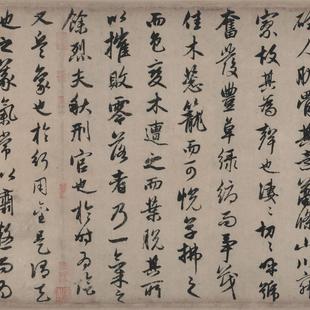 砭人肌骨其意蕭條山川寂
寥故其為聲也淒淒切切呼號
奮發豐草綠縟而爭茂
佳木葱籠而可悅草拂之
而色變木遭之而葉脫其所
以摧敗零落者乃一氣之
餘烈夫秋刑官也於時為陰
又兵象也於行用金是謂天
地之義氣常以肅殺而為